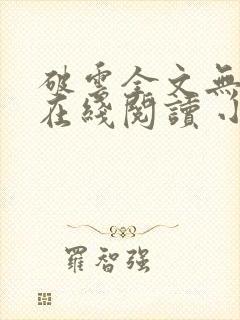 破雲全文無
在綫閱讀 小
羅智強